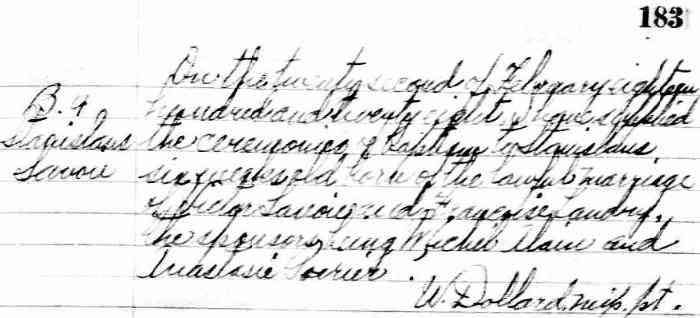 183
On the twenty second of February eighteen
B. 9 hundred and twenty eight I have supplied
Stanislaus the ceremonies of baptism to Stanislaus
Savoie six weeks old born of the lawful marriage
of Savoie and Françoise Landry.
the sponsors being Michel Alain and
Anastasie Poirier.
W. Dollard, mis. pt.